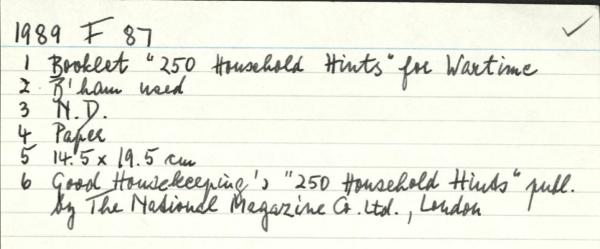 1989 F 87
1 Booklet "250 Household Hints" for Wartime
2 B'ham used
3 N.D.
4 Paper
5 14.5 x 19.5 cm
6 Good Housekeeping's "250 Household Hints" publ.
by The National Magazine Co. Ltd., London